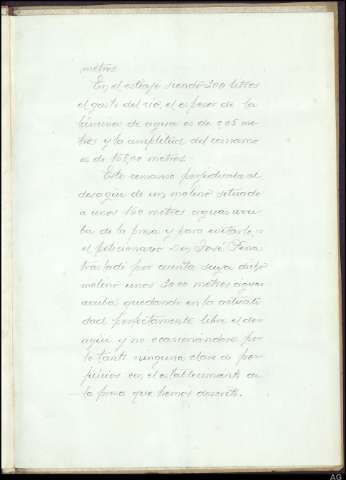 metros.
En el estiaje siendo 200 litros
el gasto del rio, el espesor de la
lámina de agua es de 0,05 me-
tros y la amplitud del remanso
es de 165,00 metros.
Este remanso perjudicaba al
desagüe de un molino situado
a unos 160 metros aguas arri-
ba de la presa y para evitarlo,
el peticionario Don José Peña
trasladó por cuenta suya dicho
molino unos 3000 metros aguas
arriba quedando en la actuali-
dad perfectamente libre el des-
agüe y no ocasionándose por
lo tanto ninguna clase de per-
juicios con el establecimiento de
la presa que hemos descrito.
AG